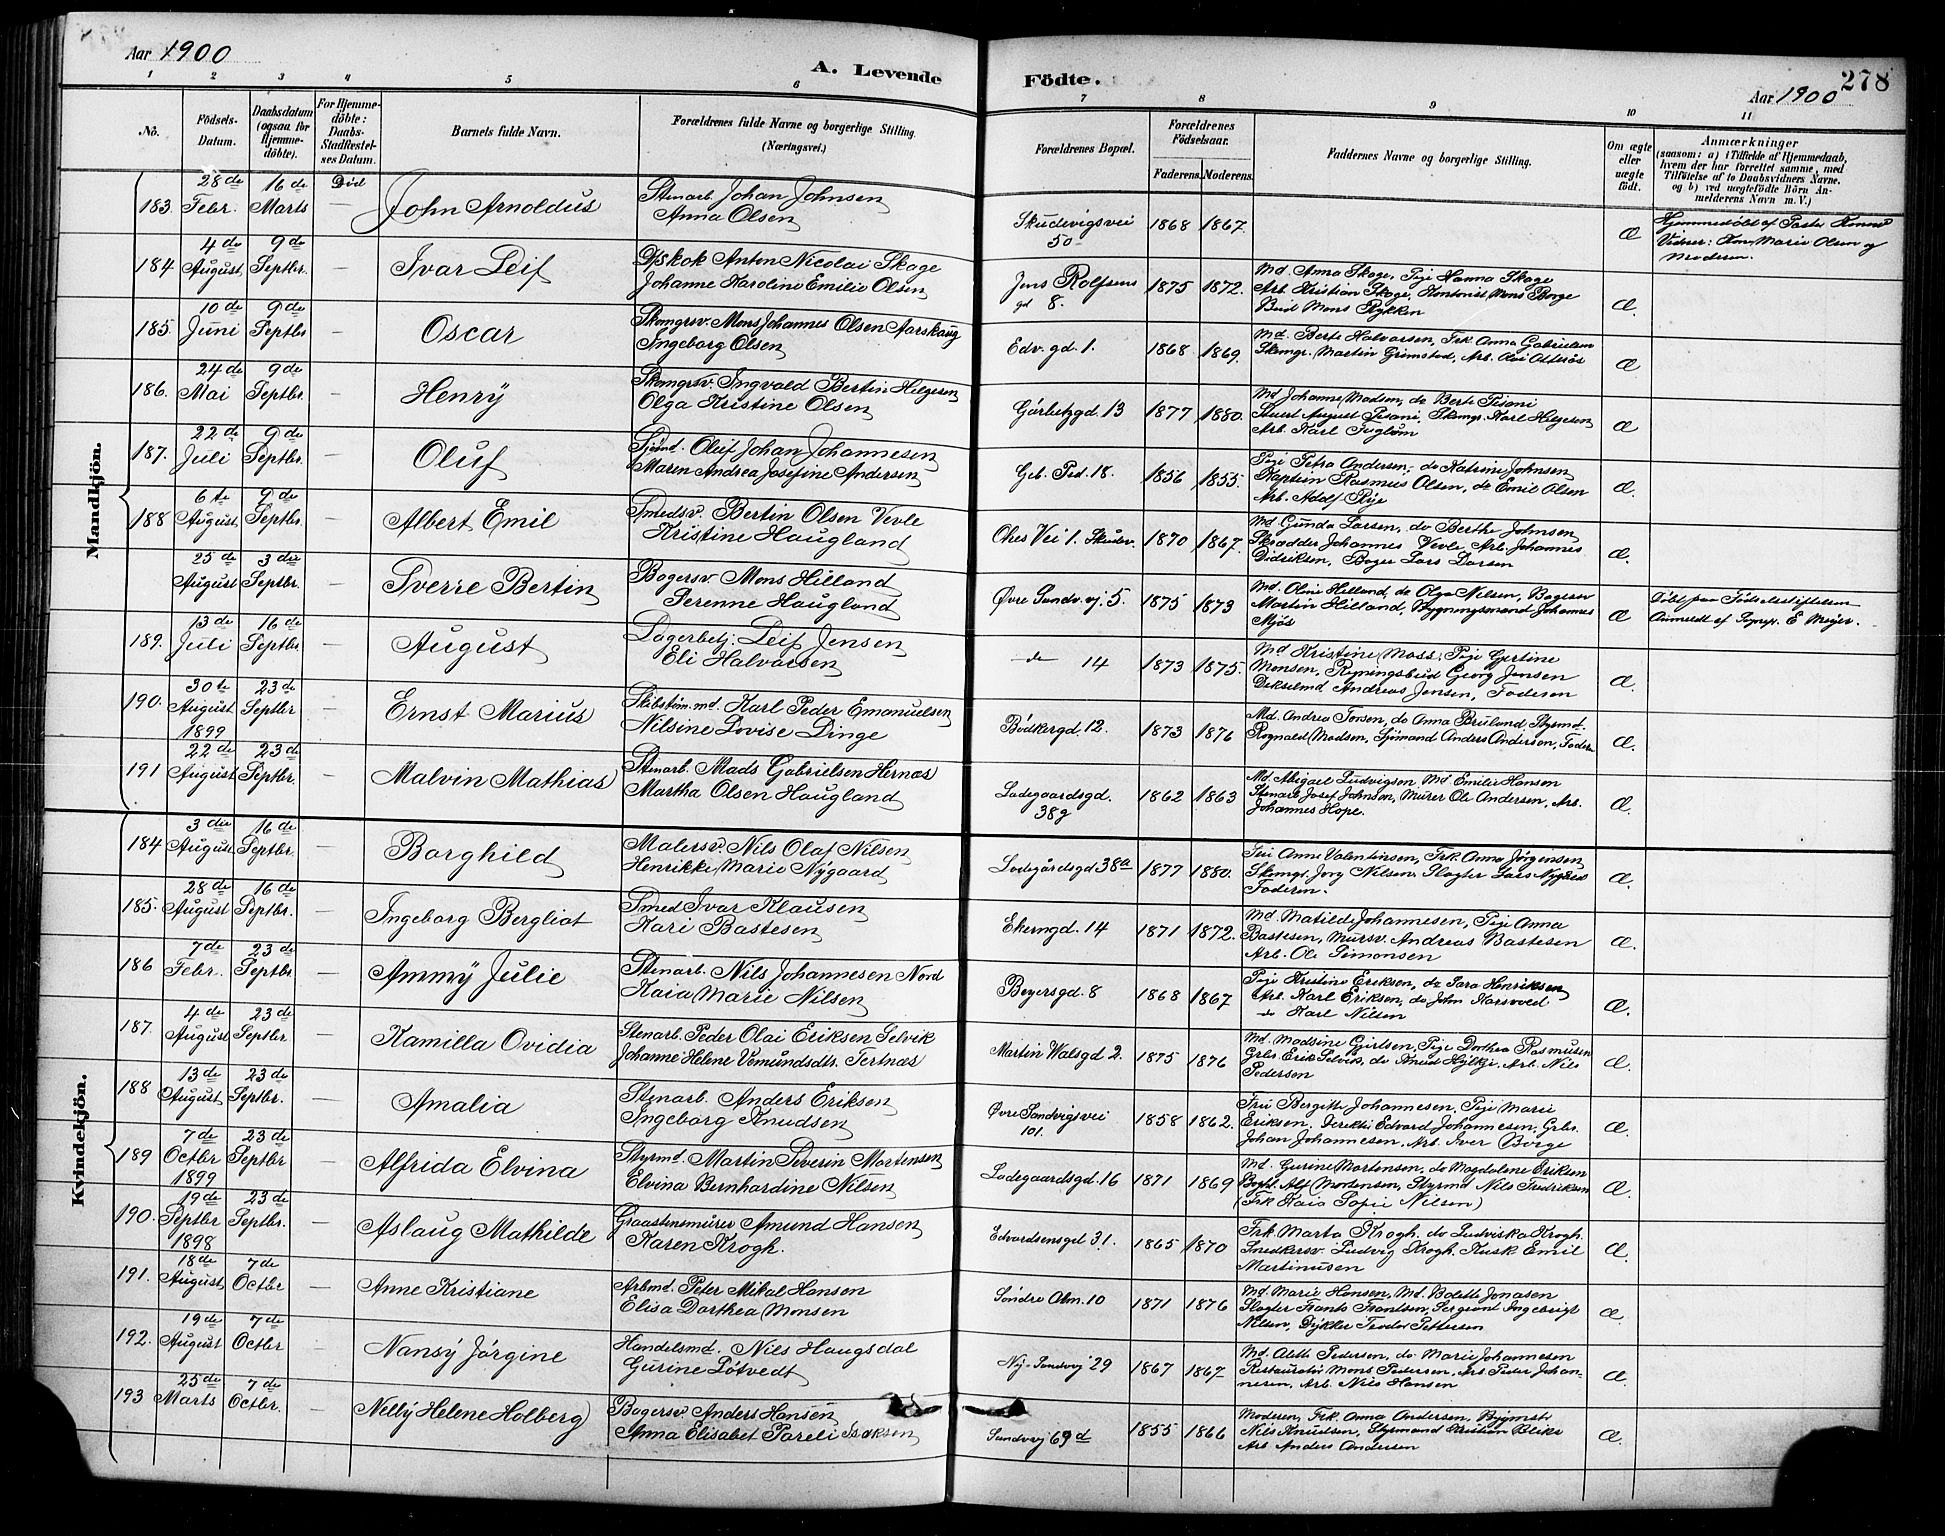 Aar 1900
A. Levende
Födte.
Aar 1900
278
1 2 3 4 5 6 7 8 9 10 11
No.
Födsels-
Datum.
Daabsdatum
(ogsaa for
Hjemme-
döbte).
For Hjemme-
döbte:
Daabs-
Stadfæstel-
ses Datum.
Barnets fulde Navn.
Forældrenes fulde Navne og borgerlige Stilling.
(Næringsvei.)
Forældrenes Bopæl.
Forældrenes
Födselsaar.
Faderens. Moderens.
Faddernes Navne og borgerlige Stilling.
Om ægte
eller
uægte
födt.
Anmærkninger
(saasom: a) i Tilfælde af Hjemmedaab,
hvem der har forrettet samme, med
Tilföielse af to Daabsvidners Navne,
og b) ved uægtefödte Börn An-
melderens Navn m. V.)
Mandkjön.
183. 28de Febr. 16de Marts Död John Arnoldus
Stenarb. Johan Johnsen
Anna Olsen
Skudevigsvei
50
1868 1867.
Æ
Vidner: Marie Olsen og
Moderen.
184 4de August 9de Septbr. — Ivar Leif
Anton Nicolai Skoge
Johanne Karoline Emilie Olsen
Jens Rolfsens
gd 8.
1875 1872.
Md. Anna Skoge, Pige Hanna Skoge
Arb. Kristian Skoge, Kontorist Mons Borge
Bud Mons Rykken
Æ.
185. 10de Juni 9de Septbr. — Oscar
Skomgrsv. Mons Johannes Olsen Aarskaug
Ingeborg Olsen
Edv. gd. 1.
1868 1869.
Md. Berte Halvorsen, Frk Anna Gabrielsen
Skomgr. Martin Grimstad, Arb.
Æ
186. 24de Mai 9de Septbr. — Henry
Skomgrsv. Ingvald Bertin Helgesen
Olga Kristine Olsen
13
1877 1880.
Md Johanne Madsen, do Berte Pisani
August Pisani, Skomgr. Karl Helgesen
Arb. Karl Fuglum
Æ
187. 22de Juli 9de Septbr. — Oluf
Sjömd. Oluf Johan Johannesen
Maren Andrea Josefine Andersen
18.
1856 1855.
Pige Petra Andersen, do Katrine Johnsen
Kaptein Rasmus Olsen, do Emil Olsen
Arb. Adolf Skye
Æ.
188 6te August 9de Septbr. — Albert Emil
Smedsv. Bertin Olsen Vevle
Kristine Haugland
Vei 1. Skudev.
1870 1867.
Md Gunda Larsen, do Berthe Johnsen
Skrædder Johannes Vevle, Arb. Johannes
Didriksen, Bager Lars Larsen
Æ.
25de August 3die Septbr. — Sverre Bertin
Bagersv. Mons Hilland
Serenne Haugland
Øvre Sandv.vj. 5.
1875 1873
Md. Oline Hilland, do Olga Nilsen, Bagersv
Martin Hilland, Bygningsmand Johannes
Mjös
Æ
Döbt paa Födselsstiftelsen
Anmeldt af E Meyer.
189. 13de Juli 16de Septbr. — August
Lagerbetj. Leif Jensen
Eli Halvorsen
— do 14
1873 1875.
Md Kristine Moss, Pige Gjertine
Monsen, Rygningsbud Georg Jensen
Andreas Jensen, Faderen
Æ.
190. 30te August 1899 23de Septbr — Ernst Marius
Skibstöm.md. Karl Peder Emanuelsen
Nilsine Lovise Dinge
Bödkergd. 12.
1873 1876
Md. Andrea Torsen, do Anna Bruland, Styrmd.
Rognald Madsen, Sjömand Anders Andersen, Fader
Æ.
191 22de August 23de Septbr. — Malvin Mathias
Stenarb. Mads Gabrielsen Hernæs
Martha Olsen Haugland
Ladegaardsgd.
38g
1862 1863
Md. Abigael Ludvigsen, Md Emilie Hansen
Stenarb Josef Johnsen, Murer Ole Andersen, Arb.
Johannes Hope.
Æ.
Kvindekjön.
184 3die August 16de Septbr. — Borghild
Malersv. Nils Olaf Nilsen
Henrikke Marie Nygaard
Ladegårdsgd 38a
1877 1880.
Anne Valentinsen, Frk. Anna Jörgensen
Skomgr. Nilsen, Slagter Lars
Faderen.
Æ.
185. 28de August 16de Septbr. — Ingeborg Bergliot
Smed Ivar Klausen
Kari Bastesen
Ekerngd. 14
1871 1872.
Md. Matilde Johannesen, Pige Anna
Bastesen, Mursv. Andreas Bastesen
Arb. Ole Simonsen
Æ.
186 7de Febr. 23de Septbr. — Ammy Julie
Stenarb. Nils Johannesen Nord
Kaia Marie Nilsen
Beyersgd. 8
1868 1867
Pige Kristine Eriksen, do Sara Henriksen
Arb. Karl Eriksen, do John Korsvold
do Karl Nilsen
Æ.
187. 4de August 23de Septbr. — Kamilla Ovidia
Stenarb. Peder Olai Eriksen Selvik
Johanne Helene Vemundsdtr. Tertnæs
Martin Walsgd 2.
1875 1876
Md. Madsine Girtsen, Pige Dorthea Rasmusen
Grbs Erik Selvik, do Knud Hylkje, Arb. Nils
Pedersen
Æ.
188 13de August 23de Septbr. — Amalia
Stenarb. Anders Eriksen
Ingeborg Knudsen
Øvre Sandvigsvei
101.
1858 1862.
Frue Bergitte Johannesen, Pige Marie
Eriksen, Direktör Edvard Johannesen, Grbs.
Johan Johannesen, Arb. Iver Borge
Æ.
189 7de Octbr 1899 23de Septbr — Alfrida Elvina
Styrmd. Martin Severin Mortensen
Elvina Bernhardine Nilsen
Ladegaardsgd. 16
1871 1869
Md. Gurine Mortensen, do Magdalene Eriksen
Alf Mortensen, Styrmd Nils Fredriksen
(Frk Kaia Sofie Nilsen)
Æ.
190. 19de Septbr 1898 23de Septbr. — Aslaug Mathilde
Graastensmürer Amund Hansen
Karen Krogh.
Edvardsensgd 31.
1865 1870
Frk. Marta Krogh, do Ludviska Krogh.
Snedkersv. Ludvig Krogh, Kusk Emil
Martinusen
Æ.
191. 18de August 7de Octbr — Anne Kristiane
Arbmd. Peter Mikal Hansen
Elisa Dorthea Monsen
Söndre Alm. 10
1871 1876
Md. Marie Hansen, Md. Bolette Jonasen
Slagter Frants Frantsen, Sergeant Ingebrigt
Nilsen, Dykker Teodor Pettersen
Æ.
192. 19de August 7de Octbr — Nansy Jörgine
Handelsmd. Nils Haugsdal
Gurine Lötvedt
Ny-Sandvj 29
1867 1867
Md. Alette Pedersen, do Marie Johannesen
Restauratör Mons Pedersen, Arb. Peder Johan-
nesen, Arb. Nils Hansen
Æ.
193 25de Marts 7de Octbr. — Nelly Helene Holberg
Bagersv. Anders Hansen
Anna Elisabet Sareli Isaksen
Sandvvj 69d
1855 1866
Moderen, Frk. Anna Andersen, Bygmstr
Nils Knudsen, Styrmand Kristian Blix
Arb Anders Andersen
Æ.